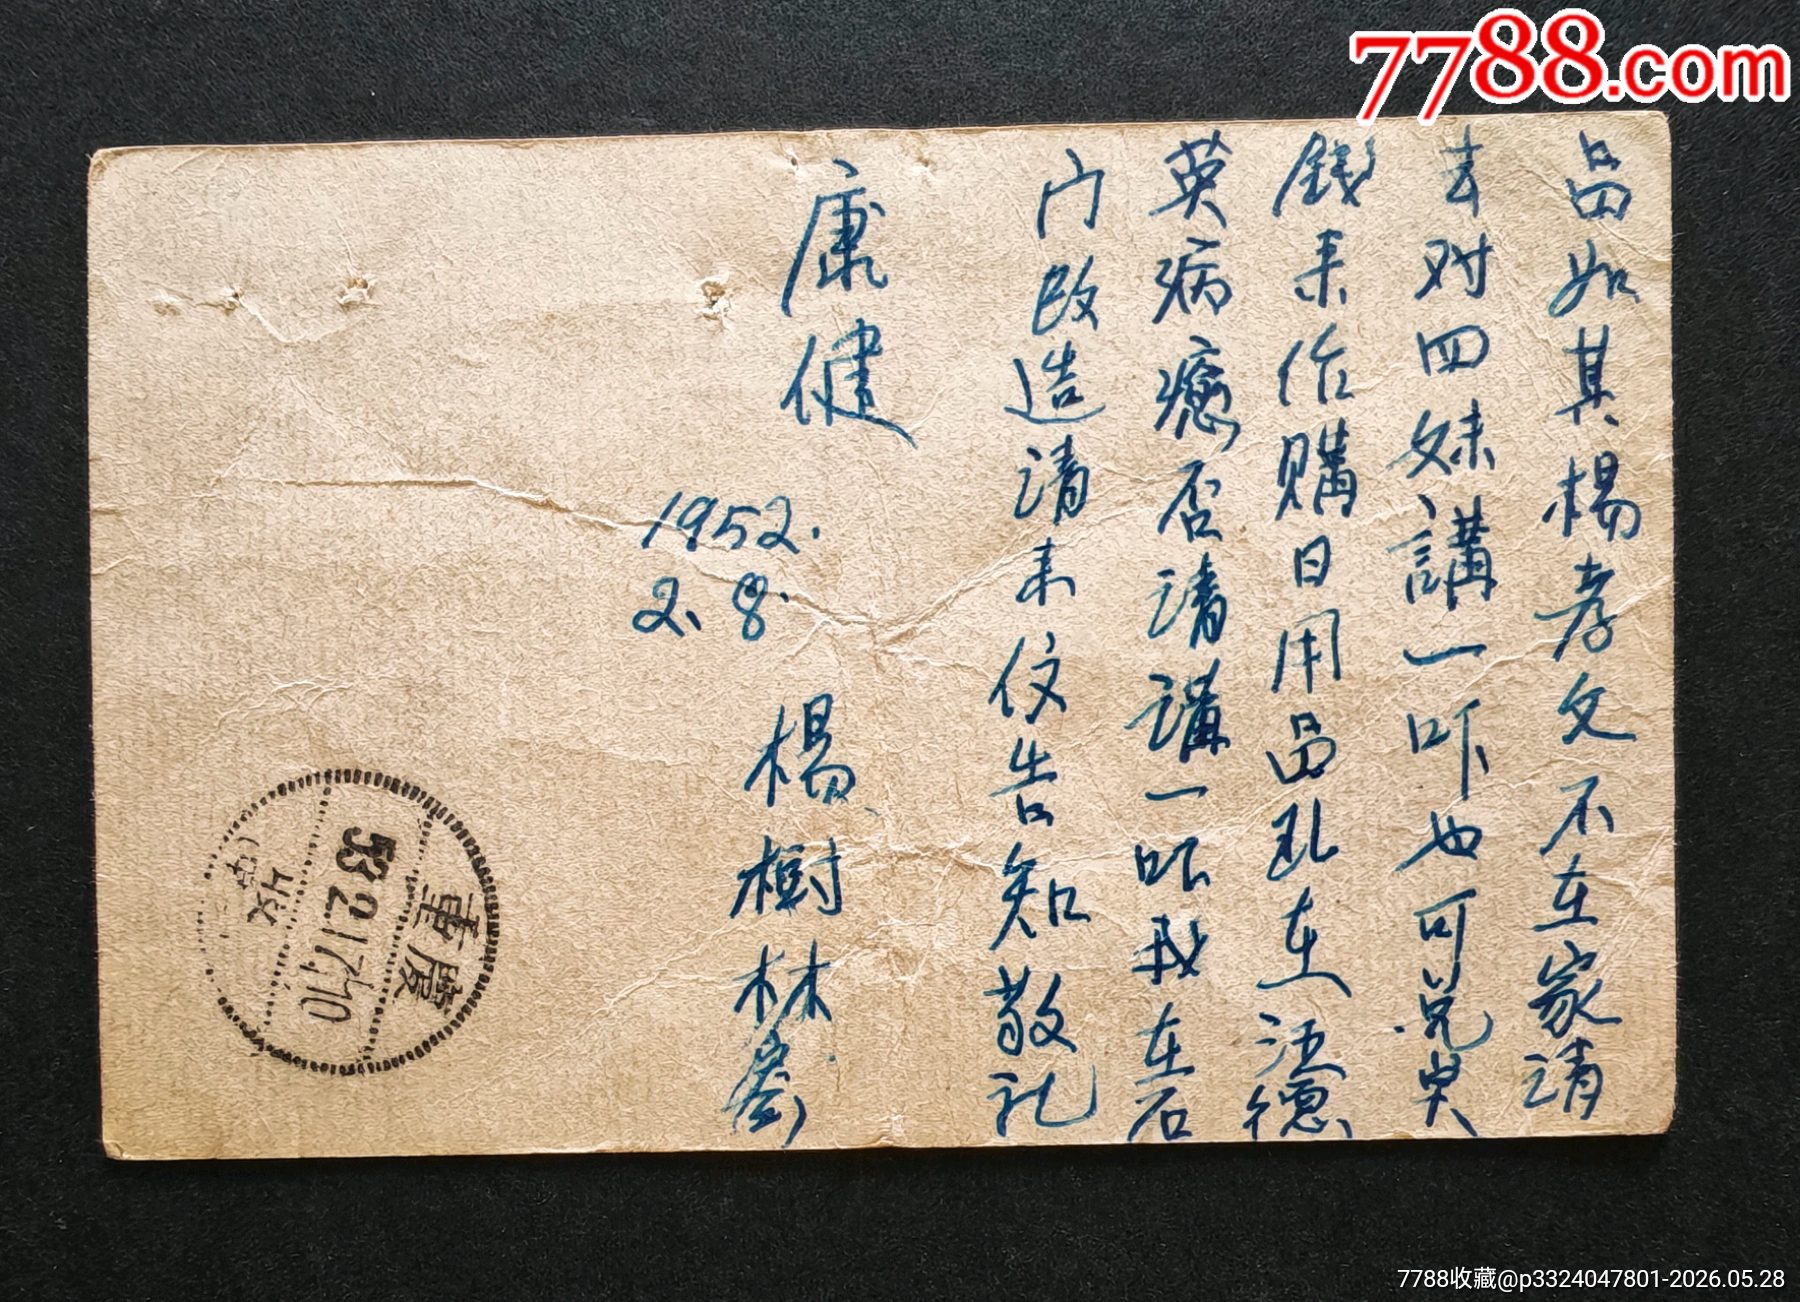 7788.com
品如其楊孝文不在家請
去对四妹講一咋也可兑臾
錢来作購日用品現在汪德
英病癒否請講一咋我在石
门改造請来信告知敬礼
康健
1952.
2.8.
楊樹林
重慶
53.2.17.10
7788收藏@p3324047801-2026.05.28